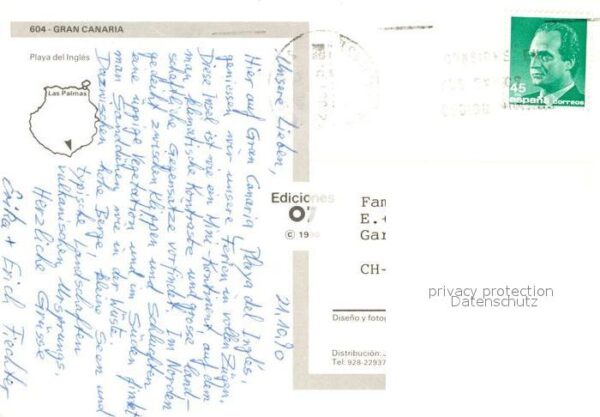 604 - GRAN CANARIA
Playa del Inglés
Las Palmas
21.10.90
Unsere Lieben,
Hier auf Gran Canaria, Playa del Inglés,
geniessen wir unsere Ferien in vollen Zügen.
Diese Insel ist wie ein Mini-Kontinent auf dem
man klimatische Kontraste und grosse land-
schaftliche Gegensätze vorfindet. Im Norden
gedeiht zwischen Klippen und Schluchten
eine üppige Vegetation und im Süden findet
man Sanddünen wie in der Wüste.
Dazwischen hohe Berge, kleine Seen und
typische Landschaften
vulkanischen Ursprungs.
Herzliche Grüsse
Erika + Erich Fiechter
Ediciones
07
© 19
45
españa correos
Fam
E.+
Gar
CH-
privacy protection
Datenschutz
Diseño y fotog
Distribución:
Tel: 928-22937